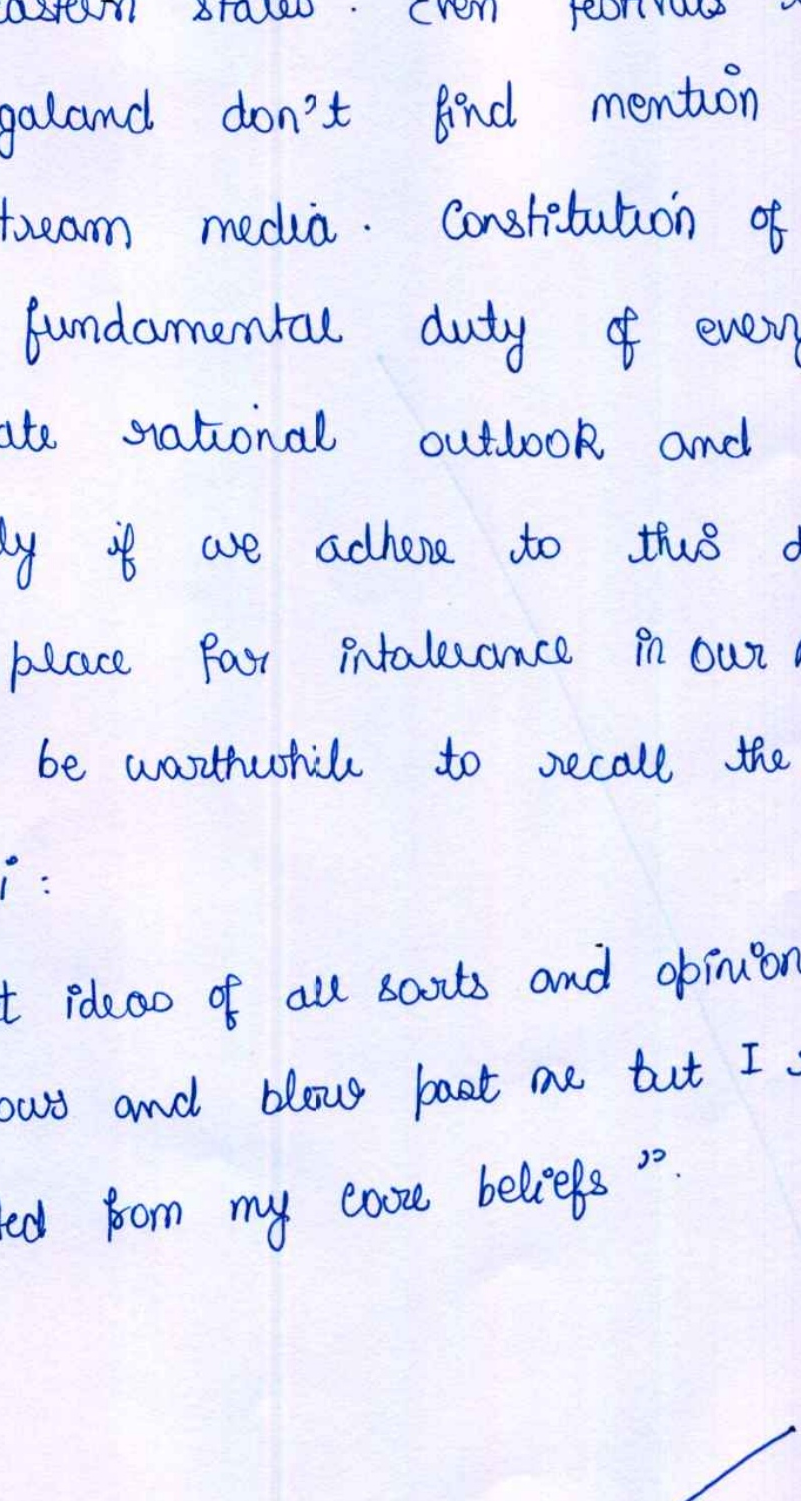 eastern states. Even festivals
galand don't find mention
tream media. Constitution of
fundamental duty of every
ate rational outlook and
ly if we adhere to this d
place for intolerance in our
be worthwhile to recall the
i :
t ideas of all sorts and opinion
ows and blow past me but I s
ted from my core beliefs ".